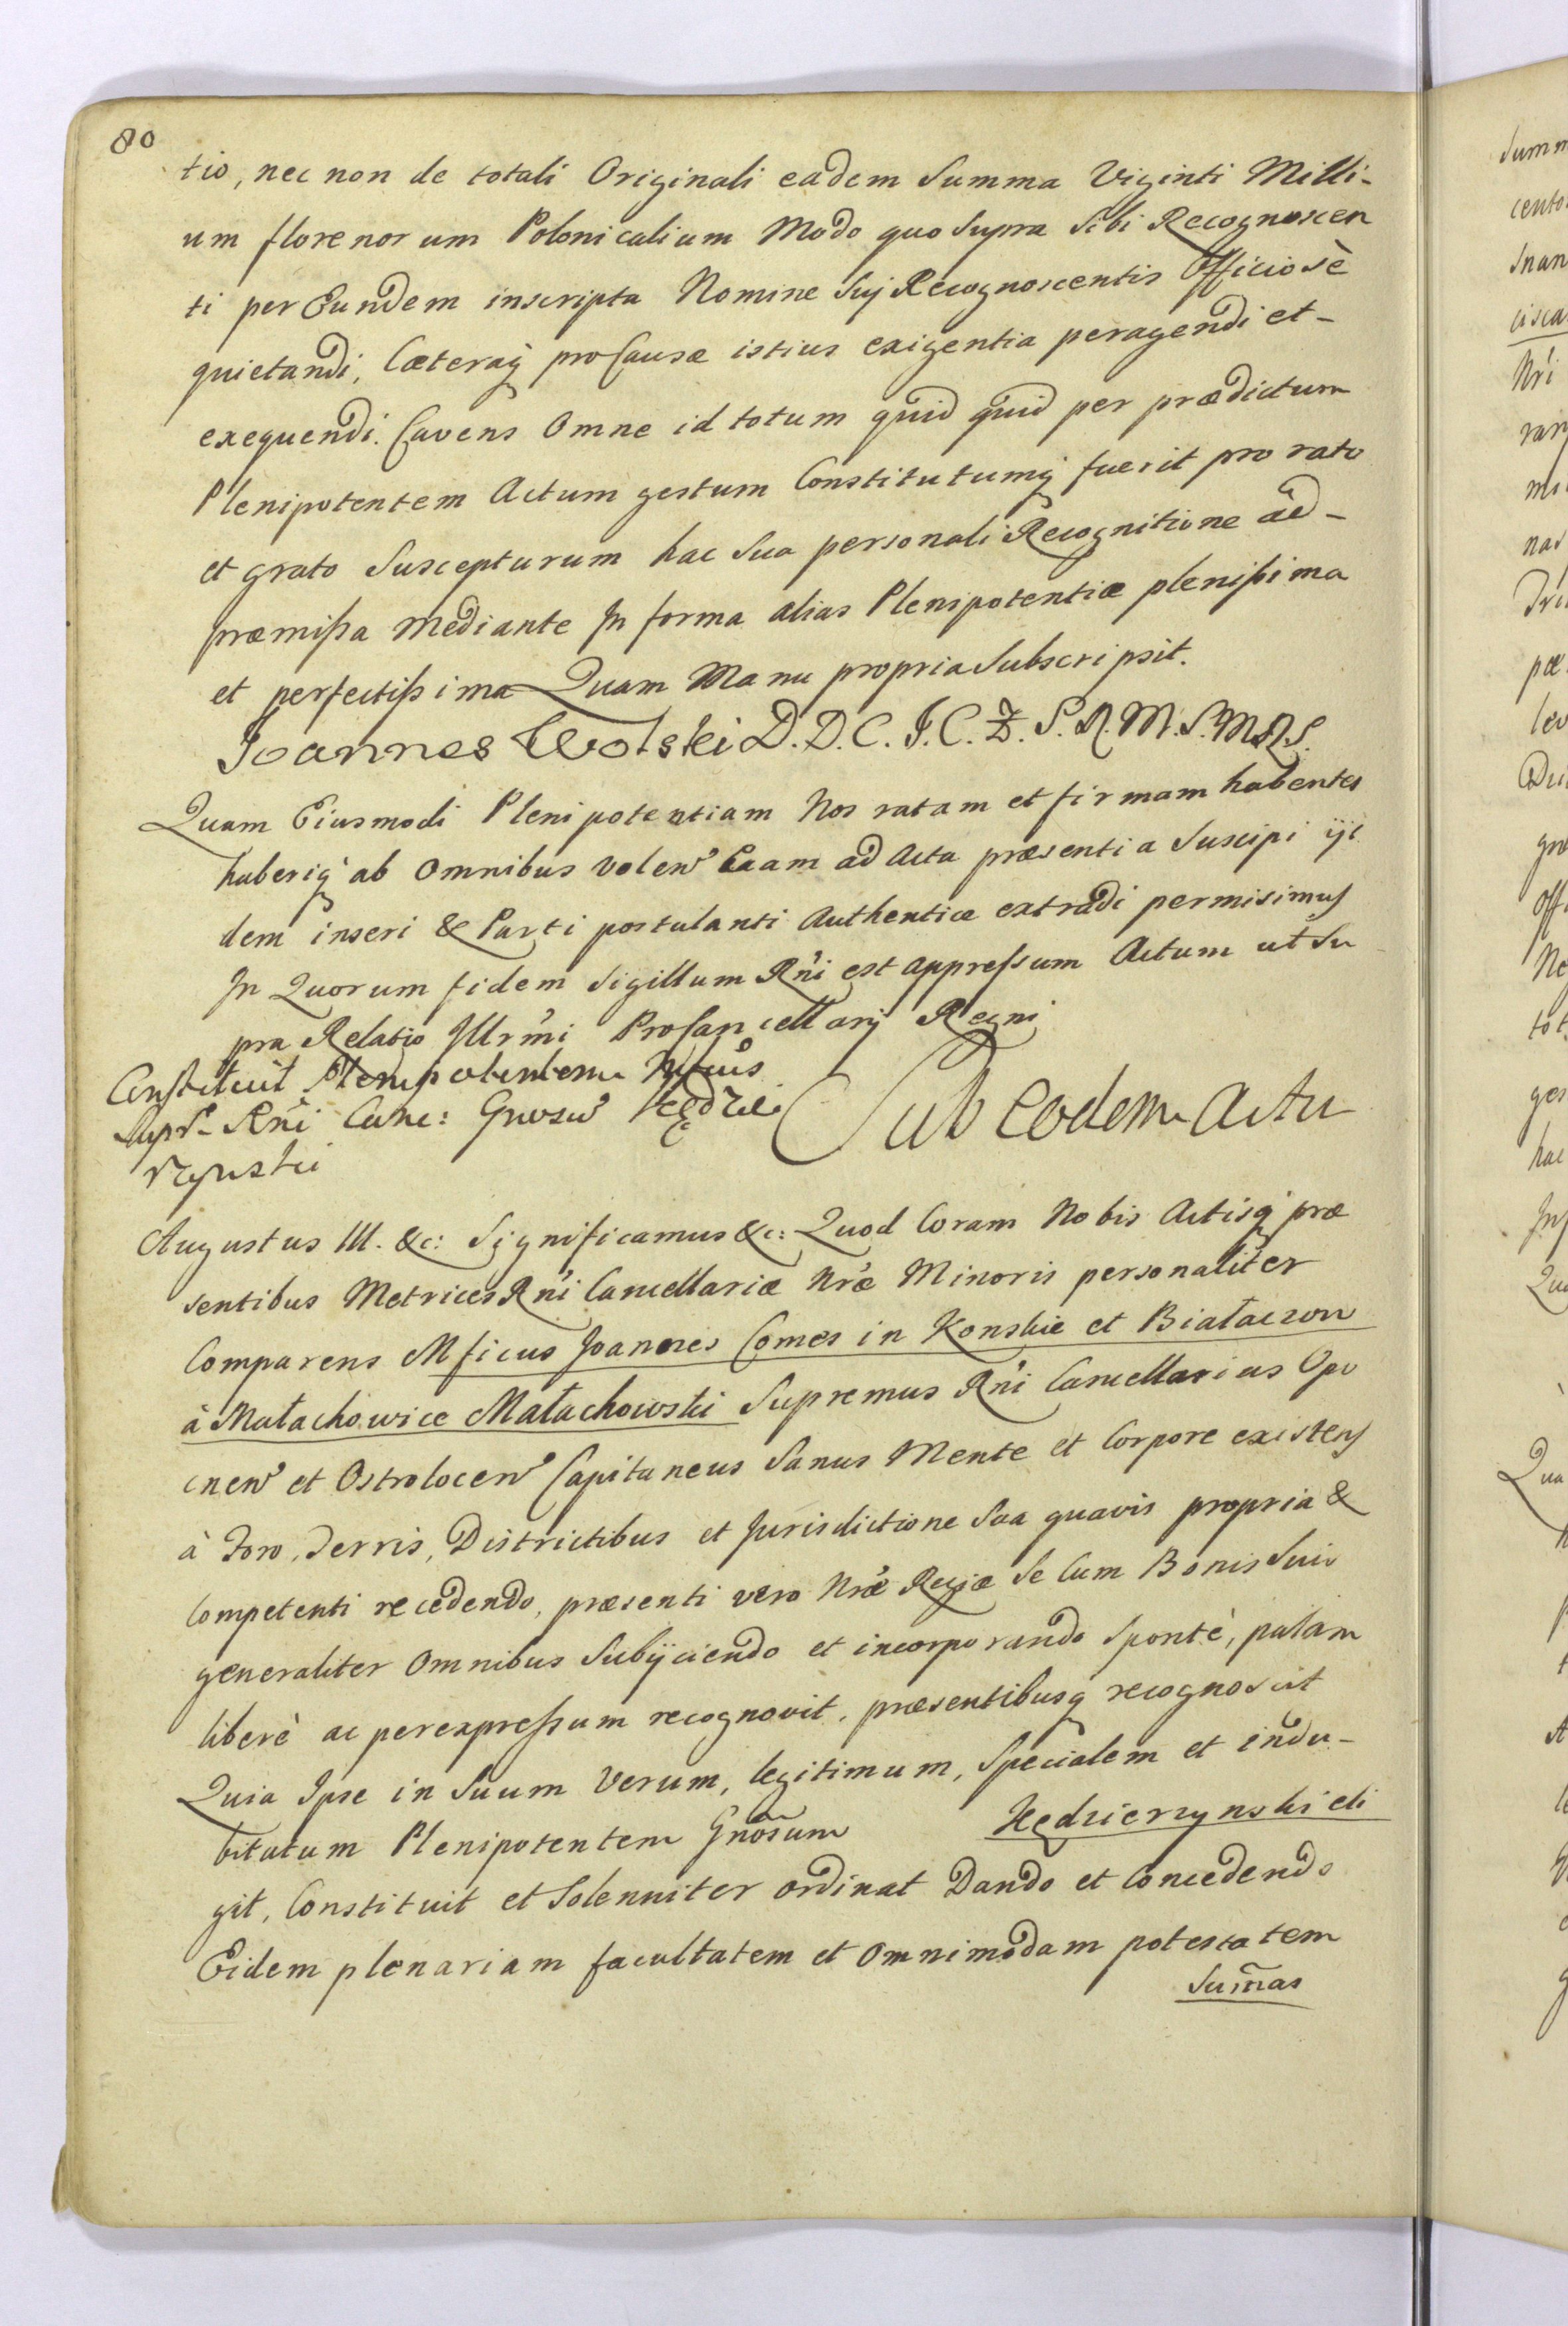 80
tio, nec non de totali Originali eadem Summa Viginti Milli-
um florenorum Polonicalium Modo quo supra sibi Recognoscen
ti per Eundem inscripta Nomine Suj Recognoscentis Officiosè
quietandi, Cæteraq pro Causæ istius exigentia peragendi et-
exequendi. Cavens Omne id totum quid quid per prædictum
Plenipotentem Actum gestum Constitutumq fuerit pro rato
et grato Suscepturum hac Sua personali Recognitione ad-
præmissa Mediante In forma alias Plenipotentiæ plenissima
et perfectissima Quam Manu propria Subscripsit.
Joannes Wolski D.D.C.J.C.Z.S.R.M.S.M.R.S.
Quam Eiusmodi Plenipotentiam Nos ratam et firmam habentes
haberiq ab Omnibus volen Eaam ad Acta præsentia Suscipi ijs
dem inseri & Parti postulanti Authenticæ extradi permisimus
In Quorum fidem Sigillum Rni est appressum Actum ut Su
pra Relatio Illrmi ProCancellarij Regni
Constituit Plenipotentem
Supr. Rni Canc: Gnosu Kędzie
rzynski
Sub Eodem Actu
Augustus III. &c: Significamus &c: Quod Coram Nobis Actisq præ
sentibus Metrices Rni Cancellariæ Nræ Minoris personaliter
Comparens Mficus Joannes Comes in Konskie et Białaczow
à Małachowice Małachowski Supremus Rni Cancellarius Opo
cnen et Ostrolocen Capitaneus Sanus Mente et Corpore existens
à Foro, Terris, Districtibus et Jurisdictione Sua quavis propria &
Competenti recedendo, præsenti vero Nræ Regiæ Se Cum Bonis Suis
generaliter Omnibus Subijciendo et incorporando Spontè, palam
liberè ac perexpressum recognovit, præsentibusq recognoscit
Quia Ipse in Suum Verum, legitimum, Specialem et indu-
bitatum Plenipotentem Gnosum Kędzierzynski eli
git, Constituit et Solenniter ordinat Dando et Concedendo
Eidem plenariam facultatem et Omnimodam potestatem
Summas